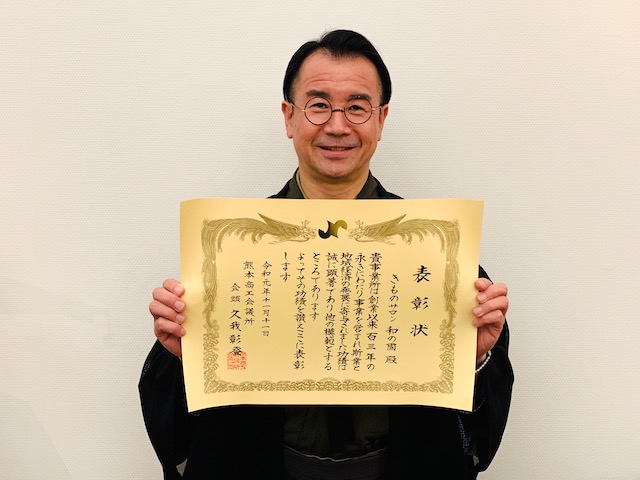 表彰状
きものサロン 和の國 殿
貴事業所は創業以来 百三年の
永きにわたり事業を営まれ斯業と
地域経済の発展に寄与されました功績は
誠に顕著であり他の模範とする
ところであります
よってその功績を讃えここに表彰
します
令和元年十一月十一日
熊本商工会議所
会頭 久我彰登